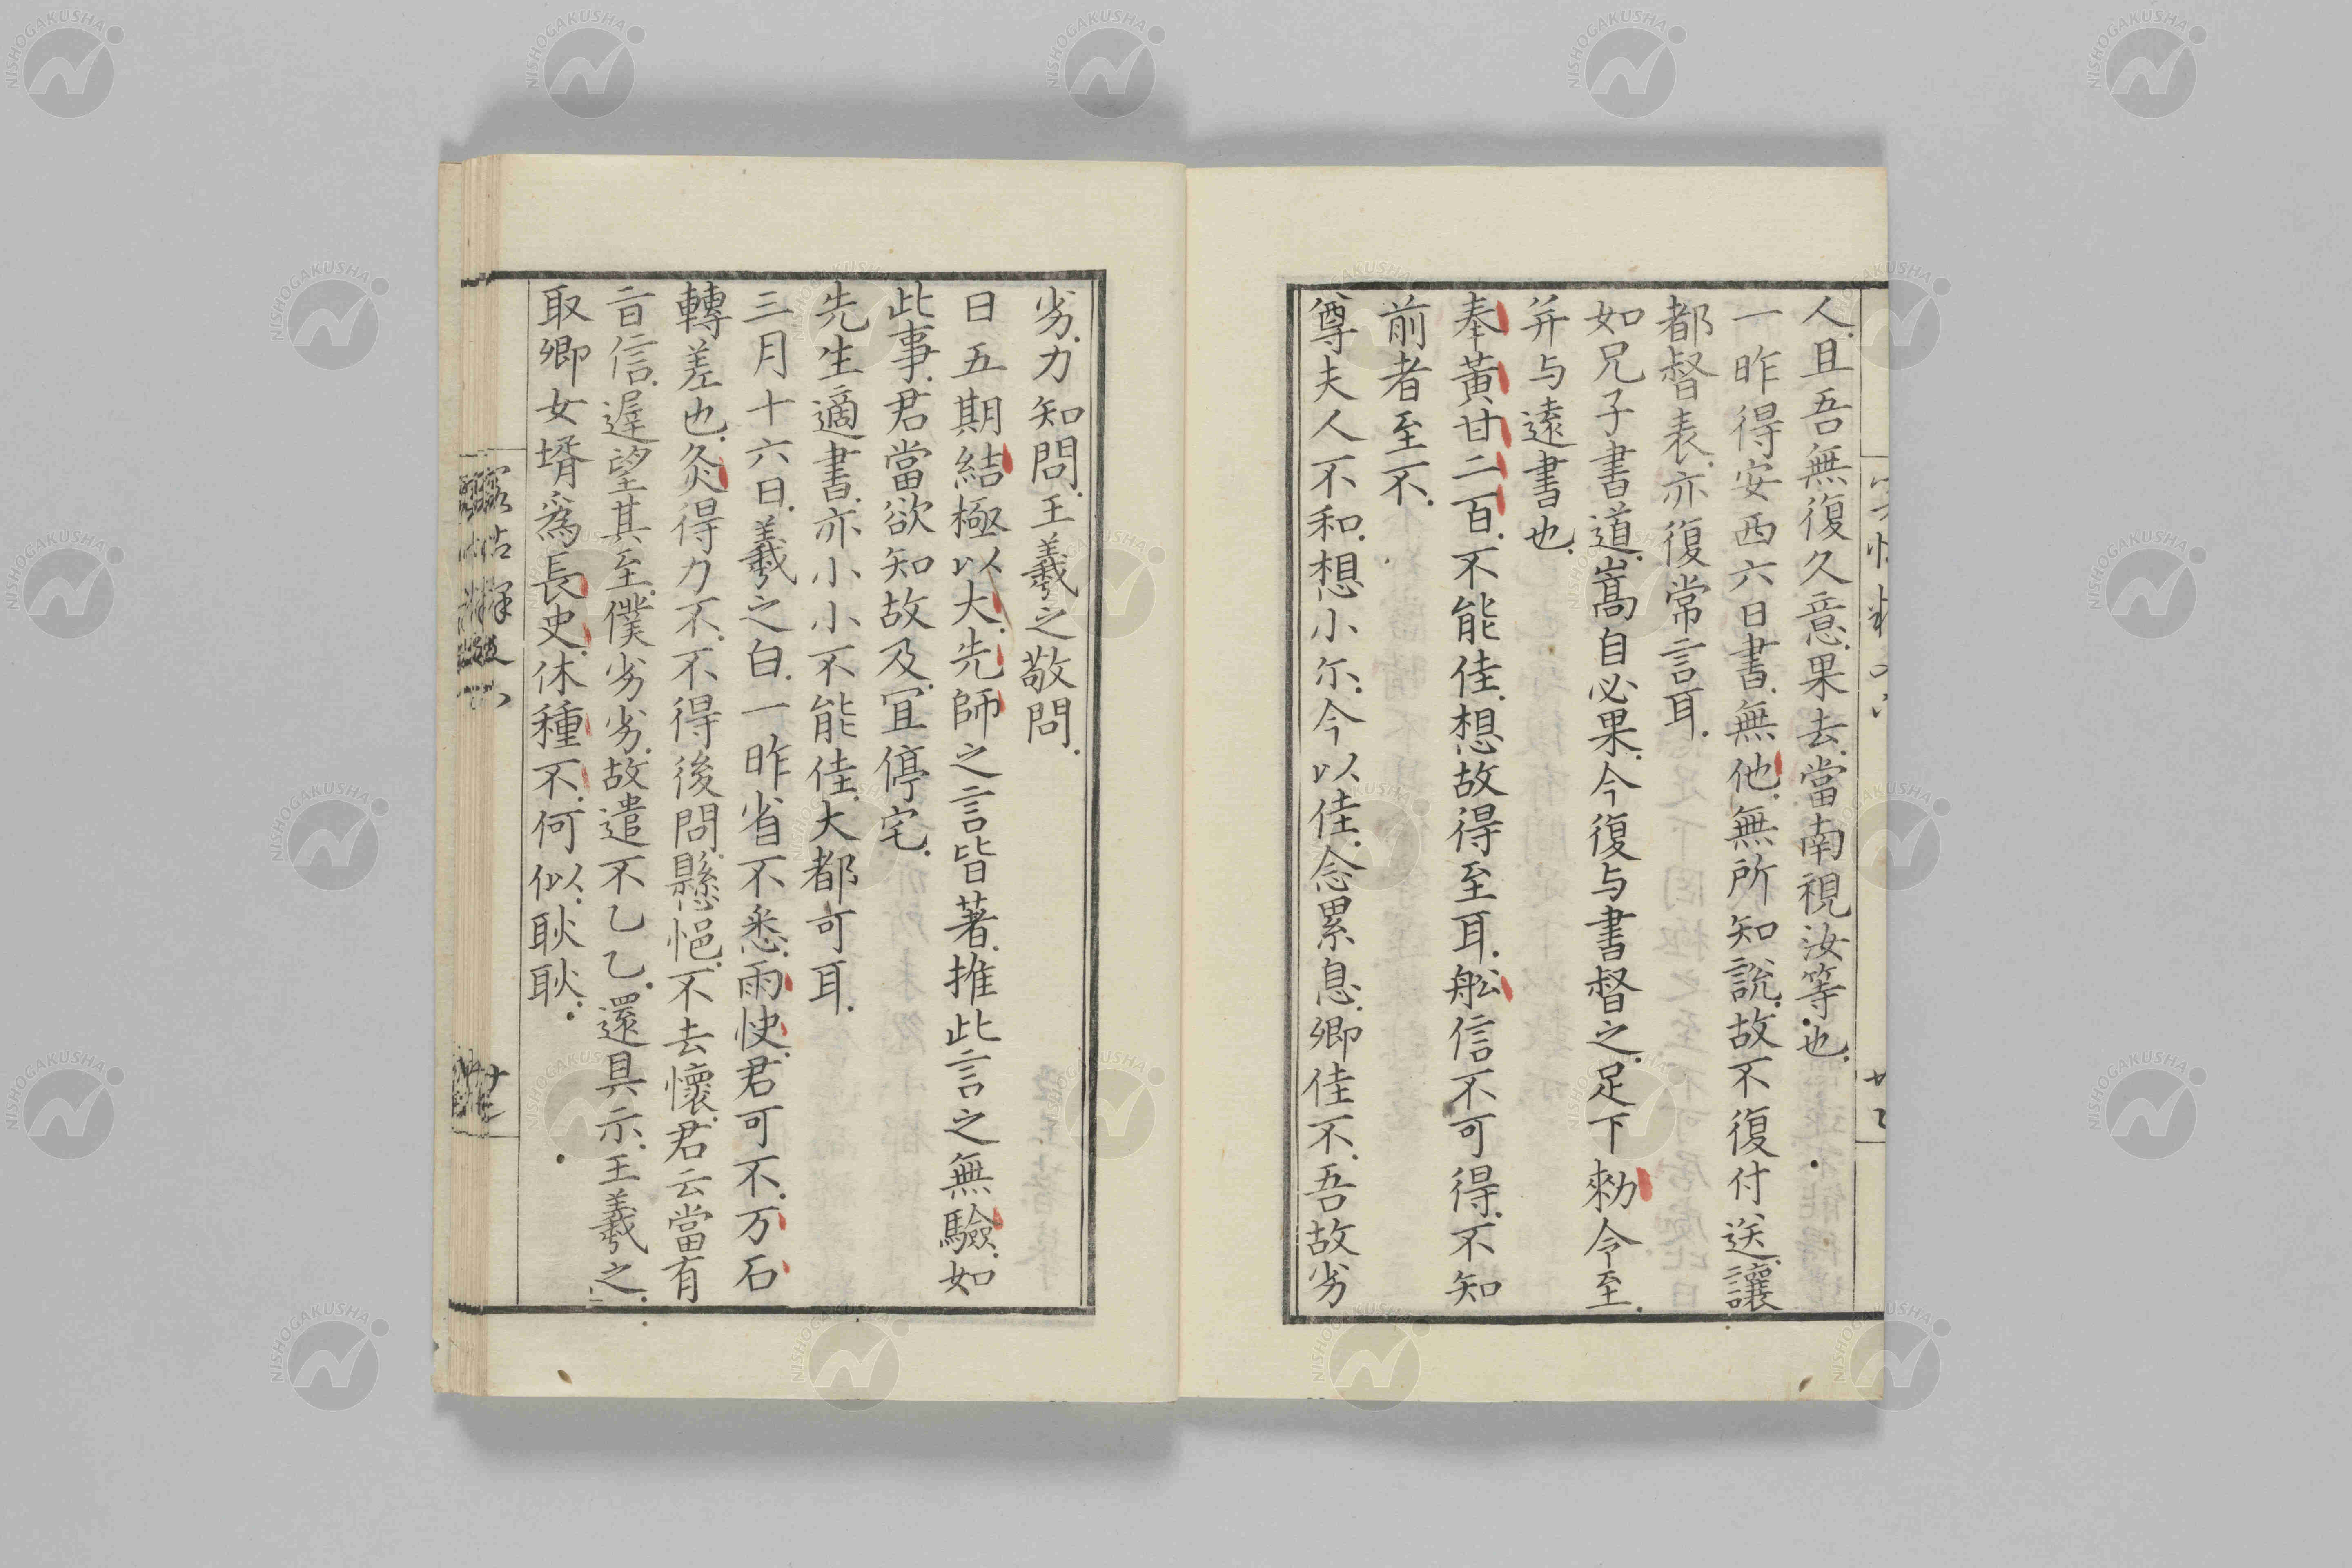 人.且吾無復久意.果去.當南視汝等也.
一昨得安西六日書.無他.無所知說.故不復付送.讓
都督表.亦復常言耳.
如兄子書道.嵩自必果.今復与書督之.足下勑令至.
并与遠書也.
奉黃甘二百.不能佳.想故得至耳.舩信不可得.不知
前者至不.
尊夫人不和.想小尓.今以佳.念累息.卿佳不.吾故劣
劣.力知問.王羲之敬問.
日五期結極以大.先師之言皆著.推此言之無驗.如
此事.君當欲知故及.冝停宅.
先生適書.亦小小不能佳.大都可耳.
三月十六日.羲之白.一昨省不悉.雨快.君可不.万石
轉差也.灸得力不.不得後問.懸悒.不去懷.君云當有
旨信.遟望其至.僕劣劣.故遣不乙乙.還具示.王羲之.
取卿女壻爲長史.休種不.何似.耿耿.
NISHOGAKUSHA